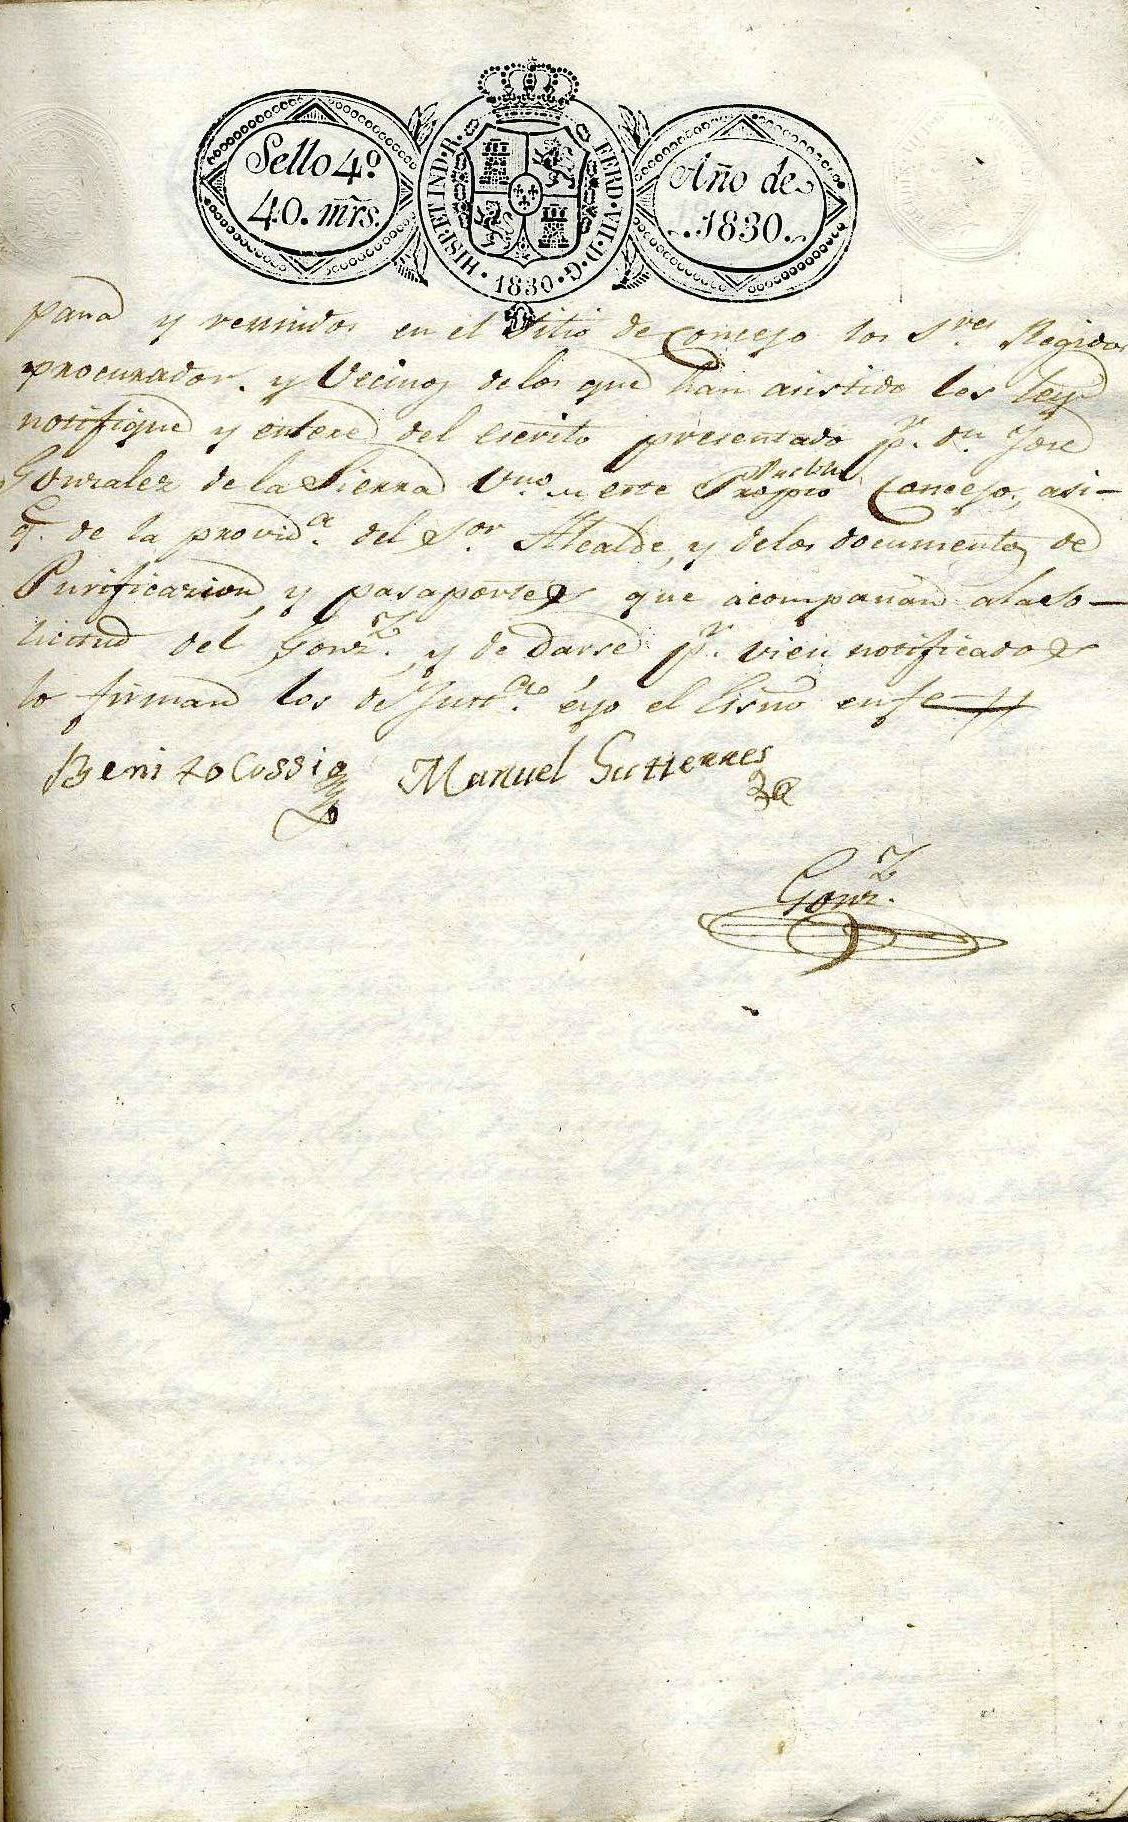 Sello 4º
40. mrs.
HISP. ET IND. R.
FERD. VII. D. G.
1830
Año de
1830.
pana y reunidos en el Sitio de Concejo los Sres Regidor
procurador. y Vecinos delos que han asistido les ley
notifique y entere del escrito presentado pr. dn Jose
Gonzalez de la Sierra Vno de este Propio Pueblo Concejo, asi-
q. de la provida. del Sor Alcalde, y delos documentos de
Purificazion y pasaportes que acompañan ala so-
licitud del Gonz. y de darse pr. vien notificados
lo firman los de Justa. éyo el Esno enfe
Benito Cossio Manuel Gutierres
Gonz.